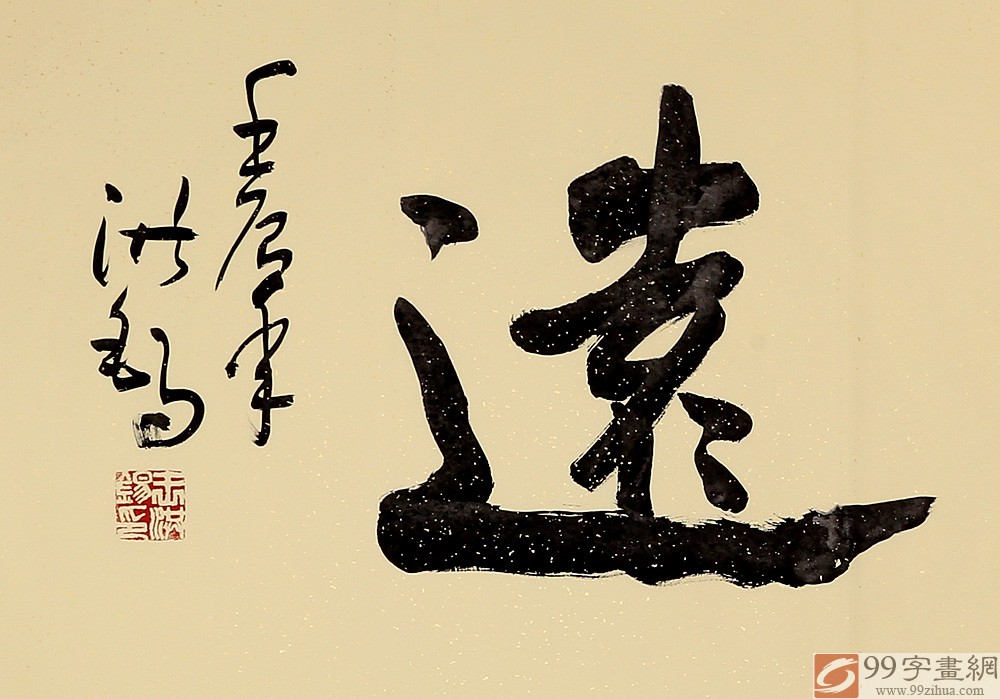 遠
壬辰年
洪錫
王洪錫印
99字畫網
www.99zihua.com